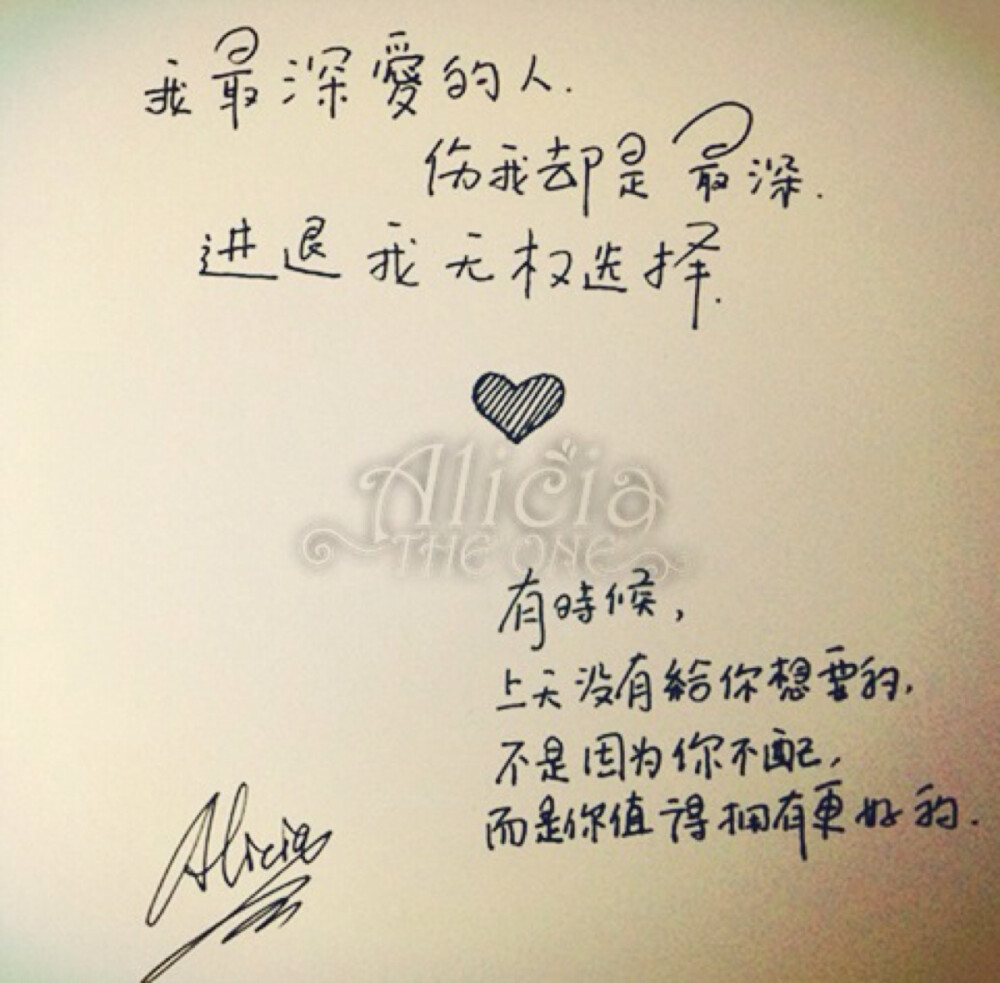 我最深愛的人.
伤我却是最深.
进退我无权选择.
Alicia
THE ONE
有時候,
上天没有給你想要的,
不是因为你不配,
而是你值得拥有更好的.
Alicia